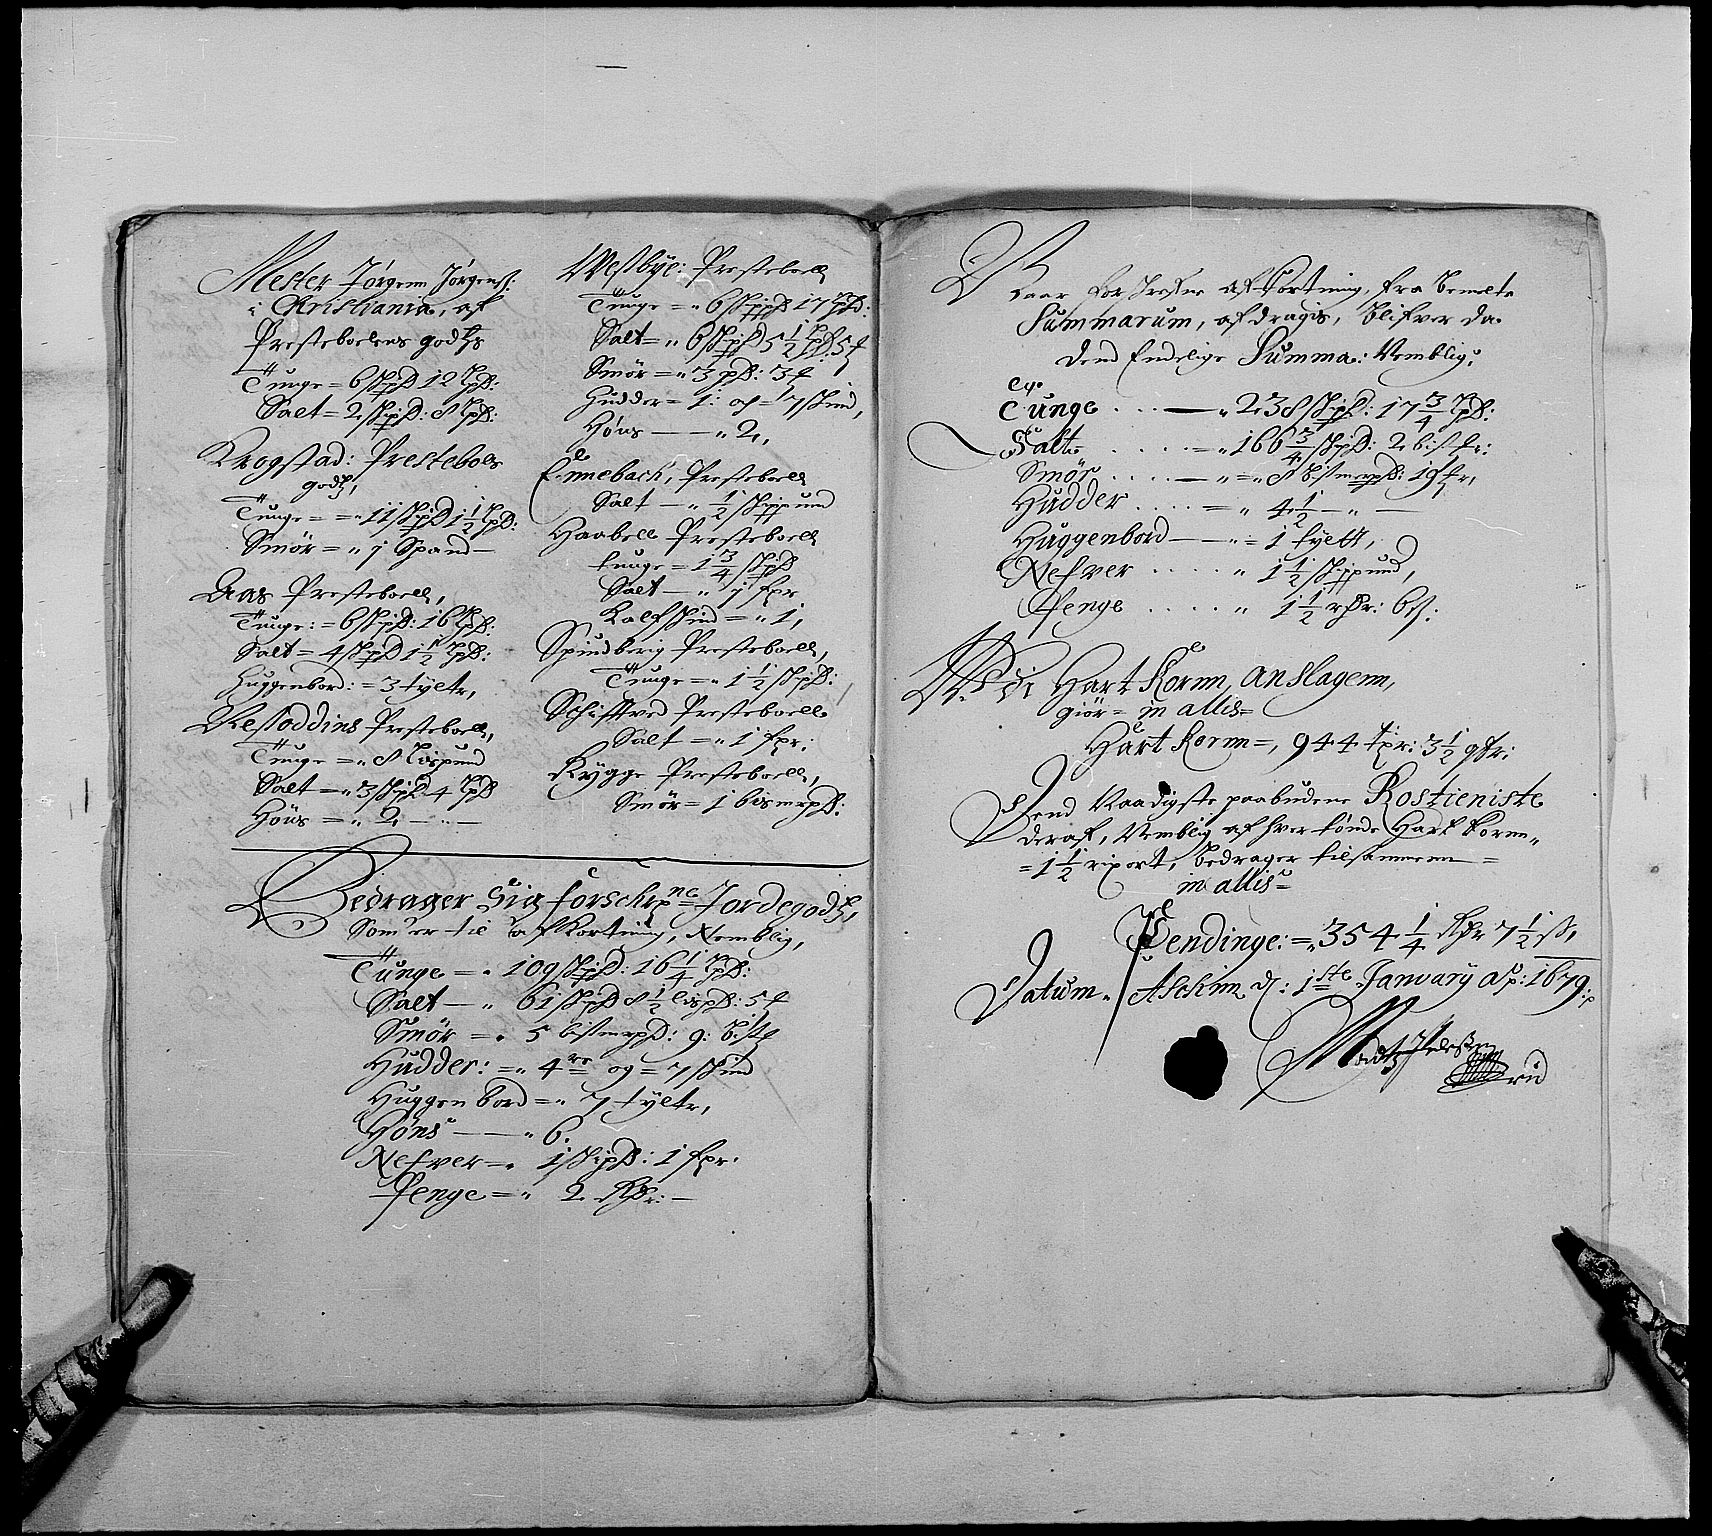 Mester Jørgenn Jørgenß:
i Christiania, af
Presteboelens godtzs
Tunge = 6 skippd 12 lpd:
Salt = 2 skipd: 8 lpd:
Krogstad: Presteboes
godtz,
Tunge = = 11 skipd 1 1/2 lpd:
Smör = „ 1 Spand —
Aas Presteboell,
Tunge: = 6 skipd: 16 lpd:
Salt = 4 skipd 1 1/2 lpd:
Huggenbord: = 3 tylter,
Nesoddins Presteboell,
Tunge = „ 8 lispund
Salt = „ 3 skipd 4 lpd
Höns = „ 2 — —
Westbye: Presteboell
Tunge = „ 6 skippd 17 lpd:
Salt = „ 6 skipd 5 1/2 lpd 5 f
Smör = „ 3 pd: 3 f
Hudder = 1: och = 7 skind,
Höns — „ 2„
Enneback, Presteboell
Salt — „ 1/2 skippund
Haabell Presteboell
tunge = 1 3/4 skipd
Salt — „ 1 fpr
Kalfskind = „ 1,
Spindberig Presteboell,
Tunge = „ 1 1/2 skpd:
Schifftved Presteboell
Salt = „ 1 fpr:
Rygge Presteboell,
Smör = 1 bismrpd:
Bedrager Sig forschrne Jordegodtz,
Som er til afkortning, Nemblig,
Tunge = „ 109 skipd: 16 1/4 lpd:
Salt — „ 61 skipd 8 1/2 lispd: 5 f
Smör = „ 5 bismrpd: 9: b:
Hudder: = „ 4re og = 7 skind
Huggenbord = „ 7 tylter,
Höns — „ 6.
Nefver = „ 1 skipd: 1 fpr.
Penge = „ 2 Rdr: —
Naar forskrefne afkortning, fra bemelte
Summarum, afdragis, blifver da
dend Endelige Summa: Nemblig:
Tunge . . . — „ 238 skipd: 17 3/4 lpd:
Salt . . . . = „ 166 3/4 skipd: 2 bis fr:
Smör . . . . — „ = „ 8 bismerpd: 19 fr,
Hudder . . . . = „ 4 1/2 — „ —
Huggenbord — „ = 1 tyllt,
Nefver . . . . „ 1 1/2 skippund,
Penge . . . . „ 1 1/2 rdr: 6 s:
Hart Kornn, anslagenn,
giör = in allis =
Hart Kornn =, 944 tpr: 3 1/2 qtr:
Dend Naadigste paabudene Rostieniste
deraf, Nemblig af hver tönde Hart korn„
= 1 1/2 rixort, bedrager tilsammenn =
in allis =
Pendinge: = „ 354 1/4 Rdr 7 1/2 ß,
Datum „ Askim d: 1ste January ao: 1679